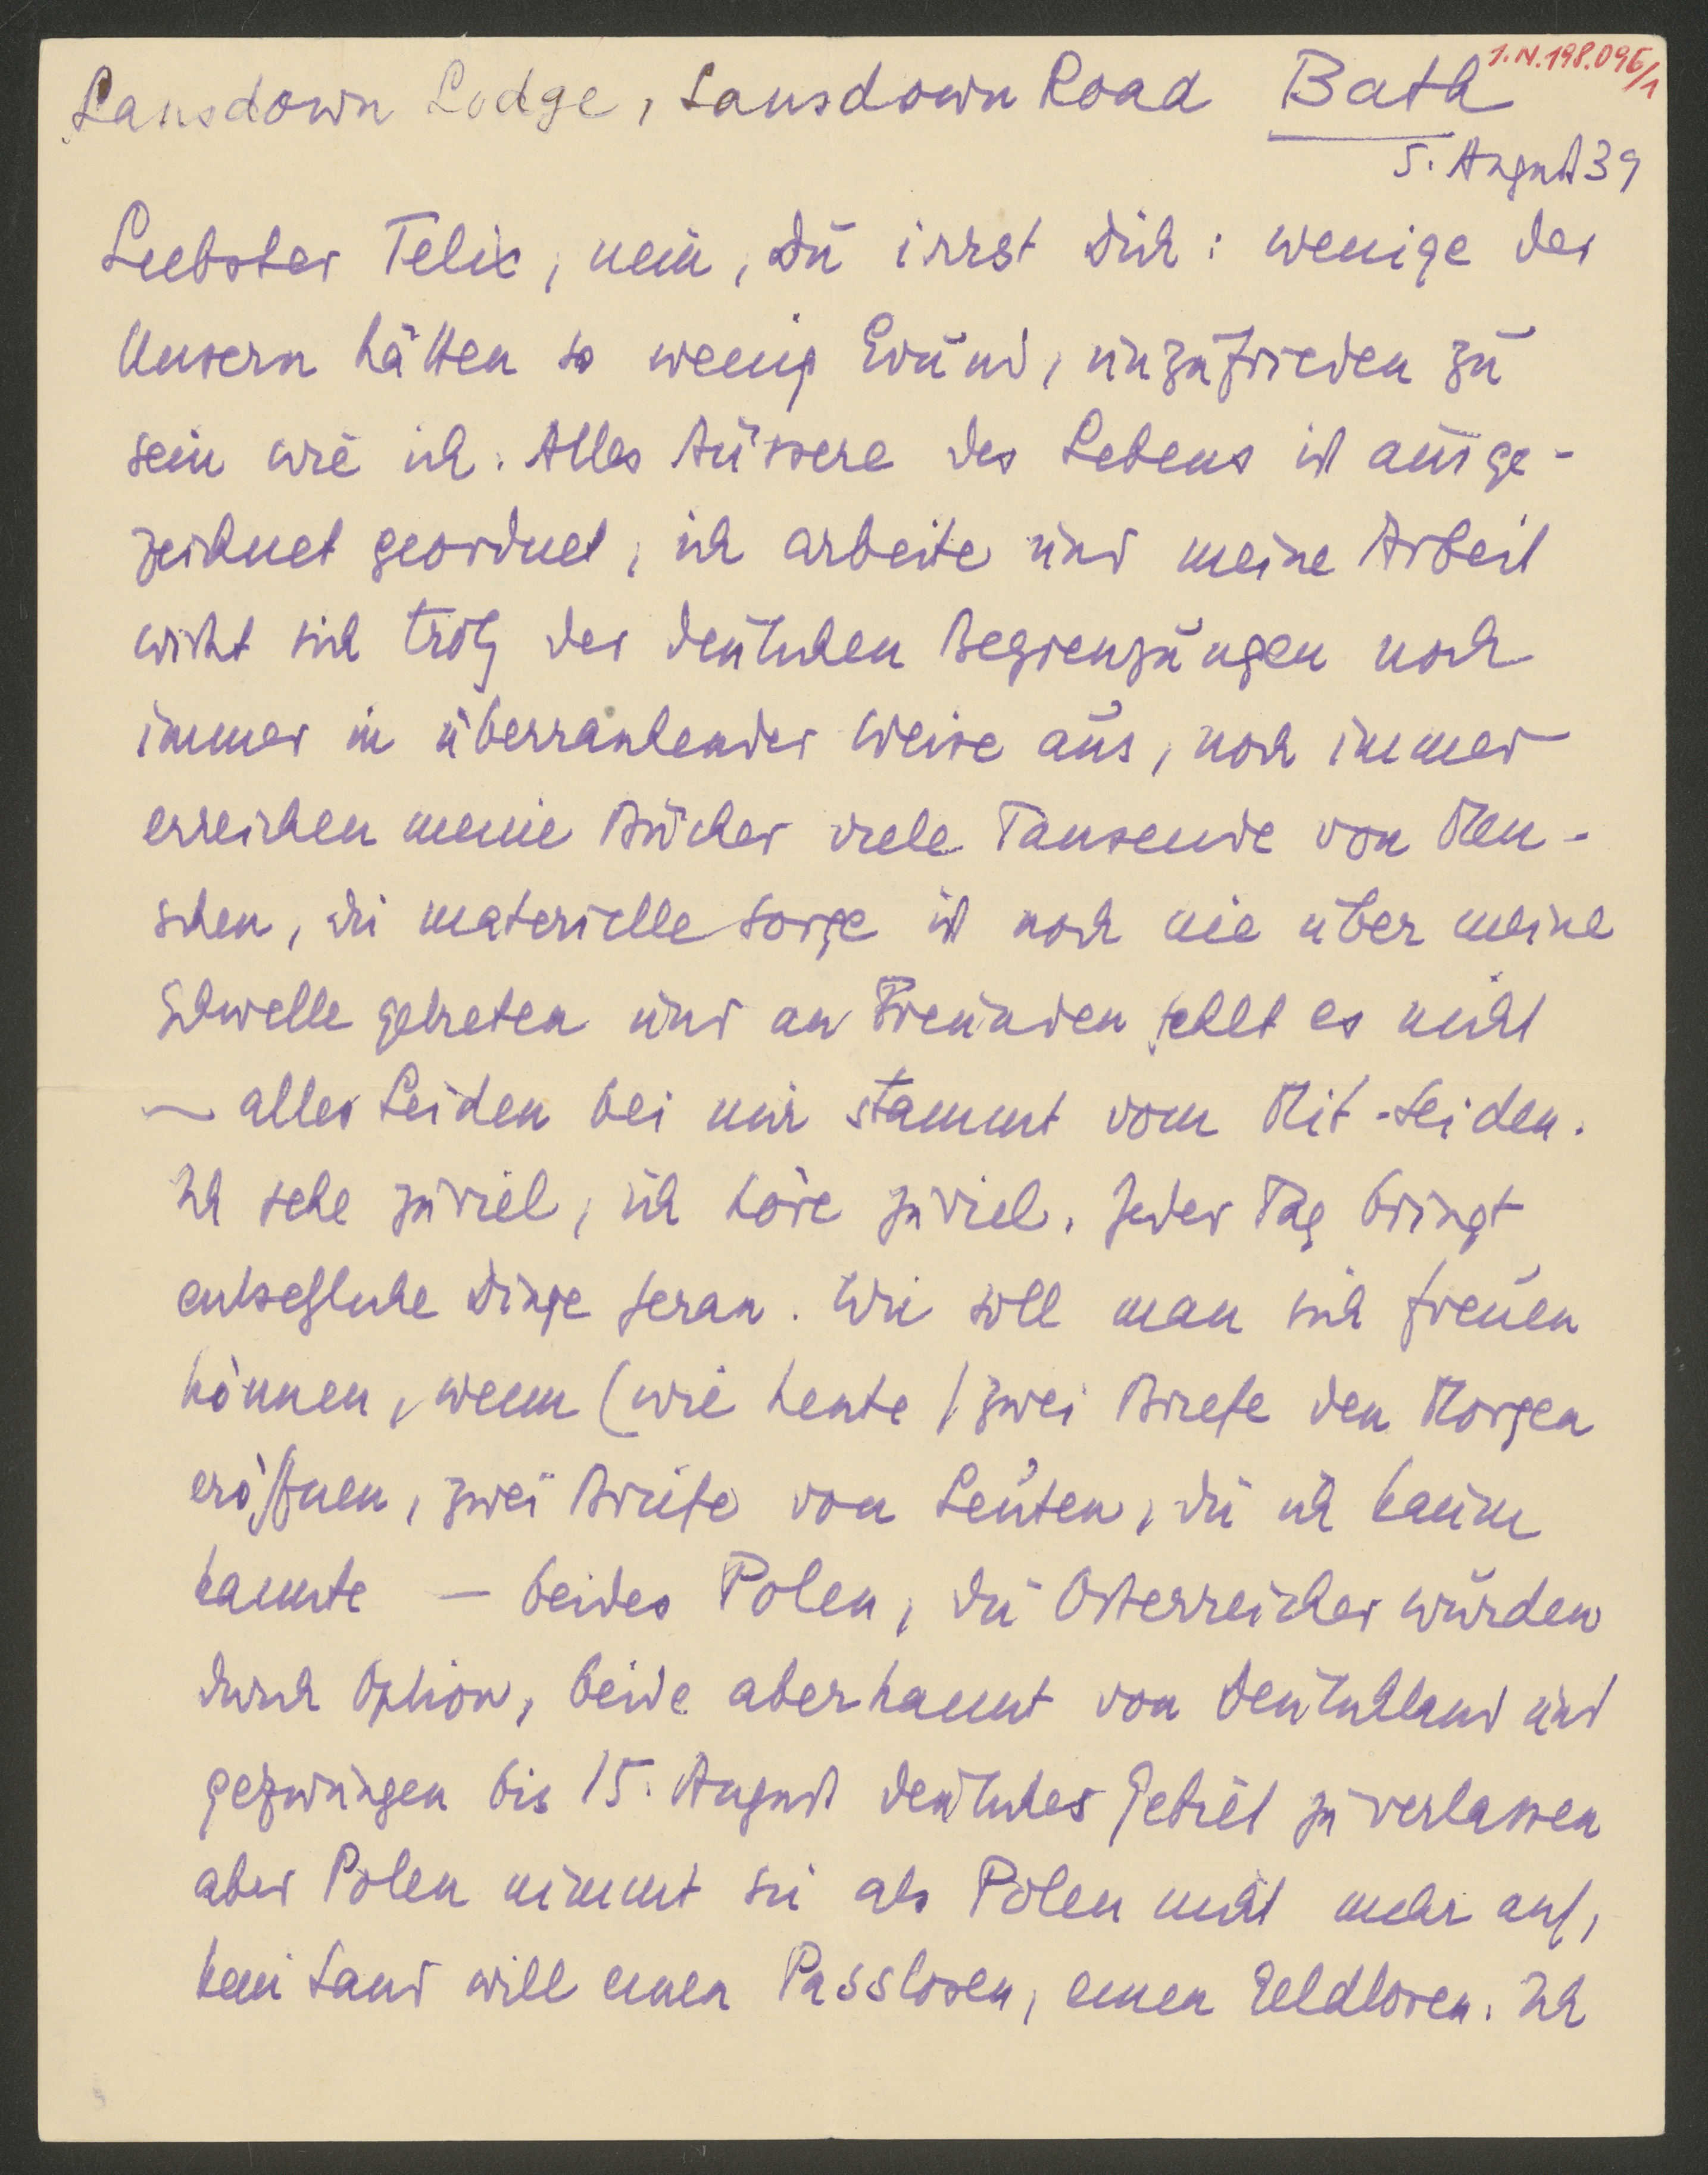 I.N.198.096/1
Lansdown Lodge, Lansdown Road Bath
5. August 39
Liebster Felix, nein, Du irrst Dich: wenige der
Unsern hätten so wenig Grund, unzufrieden zu
sein wie ich. Alles Äussere des Lebens ist ausge-
zeichnet geordnet, ich arbeite und meine Arbeit
wirkt sich trotz der deutschen Begrenzungen noch
immer in überraschender Weise aus, noch immer
erreichen meine Bücher viele Tausende von Men-
schen, die materielle Sorge ist noch nie über meine
Schwelle getreten und an Freunden fehlt es nicht
– alles Leiden bei mir stammt vom Mit-Leiden.
Ich sehe zuviel, ich höre zuviel. Jeder Tag bringt
entsetzliche Dinge heran. Wie soll man sich freuen
können, wenn (wie heute) zwei Briefe den Morgen
eröffnen, zwei Briefe von Leuten, die ich kaum
kannte – beides Polen, die Österreicher wurden
durch Option, beide aberkannt von Deutschland und
gezwungen bis 15. August deutsches Gebiet zu verlassen
aber Polen nimmt sie als Polen nicht mehr auf,
kein Land will einen Passlosen, einen Geldlosen. Ich